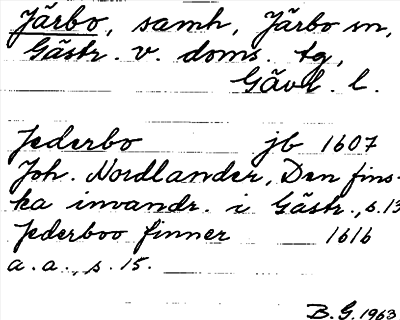 Järbo, samh, Järbo sn,
Gästr. v. doms. tg,
Gävl. l.
Jederbo jb 1607
Joh. Nordlander, Den fins-
ka invandr. i Gästr., s. 13
Jederboo finner 1616
a. a., s. 15.
B. G. 1963